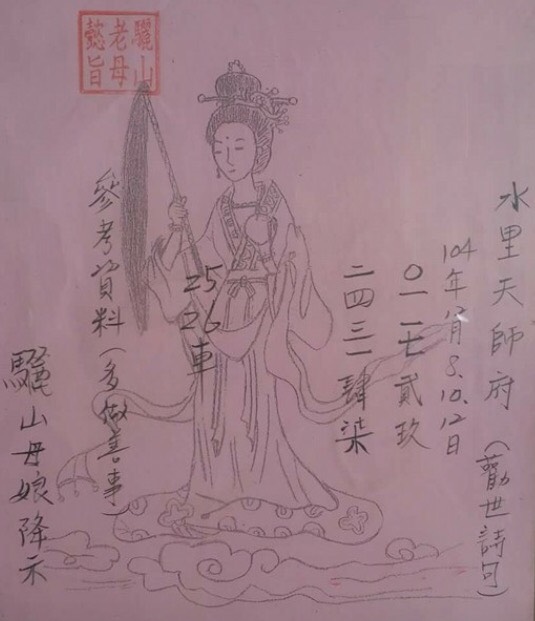 水里天師府(勸世詩句)
104年八月8.10.12日
〇一一七貳玖
二四三一肆柒
25
26
車
參考資料(多做善事)
驪山母娘降示
驪山
老母
懿旨